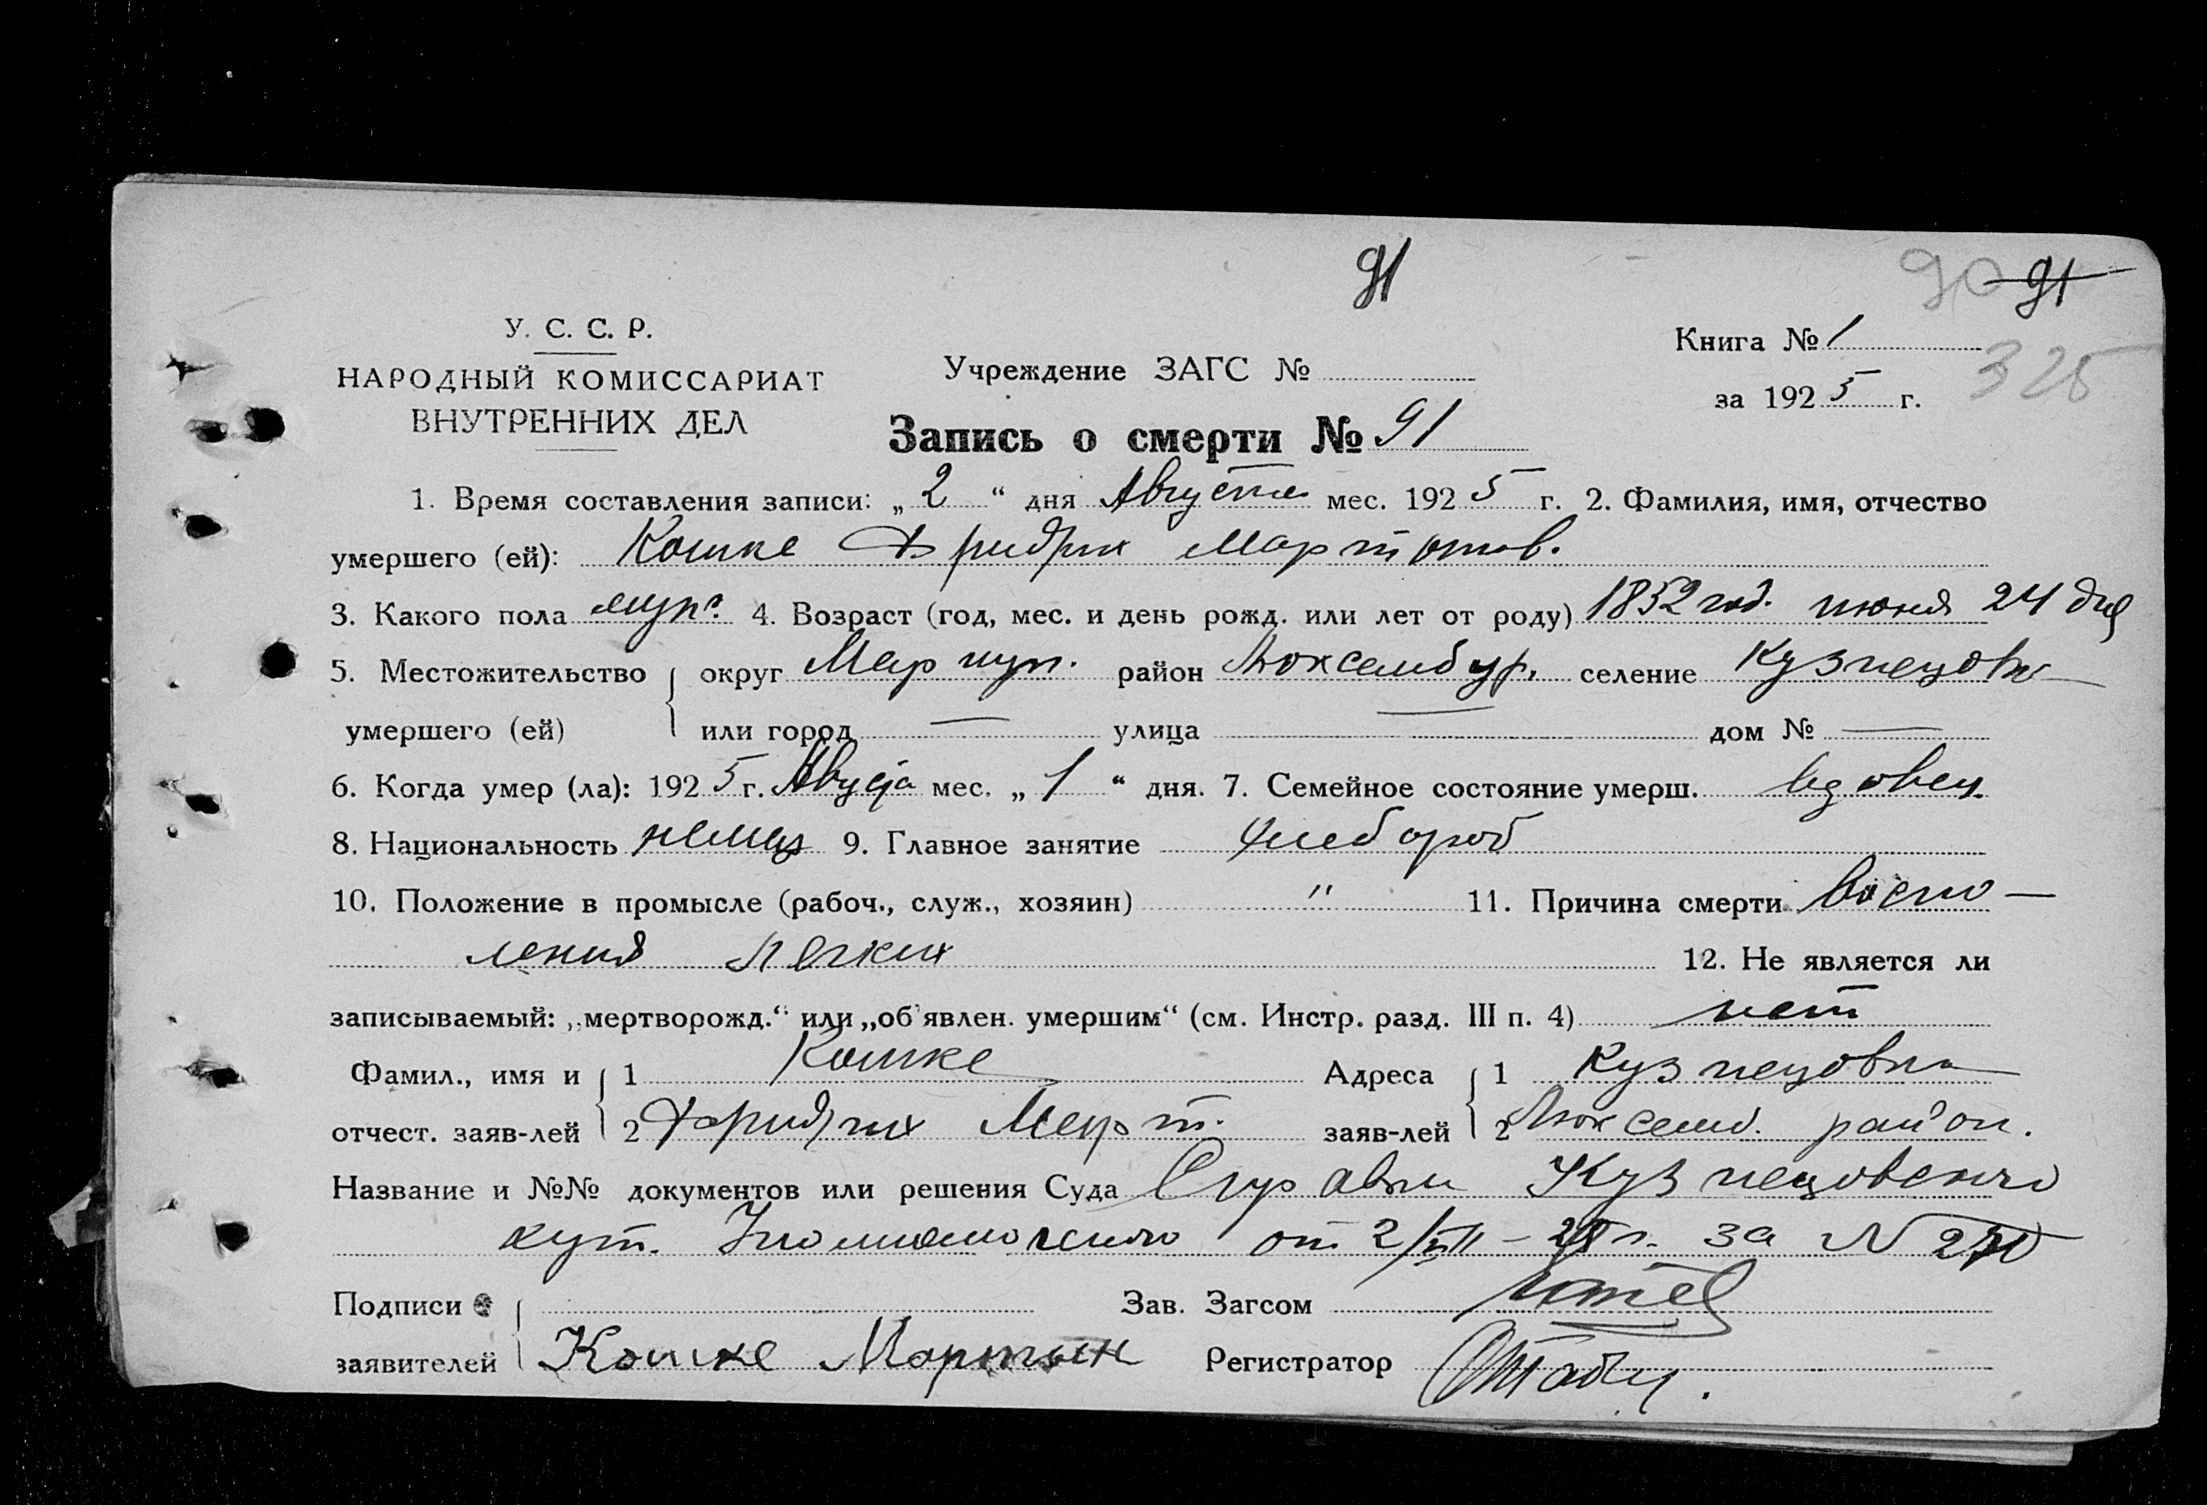 91
90 91
У. С. С. Р.
НАРОДНЫЙ КОМИССАРИАТ
ВНУТРЕННИХ ДЕЛ
Учреждение ЗАГС №
Книга № 1
325
за 1925 г.
Запись о смерти № 91
1. Время составления записи: „2“ дня Августа мес. 1925 г. 2. Фамилия, имя, отчество
умершего (ей): Кошке Фридрих Мартынов.
3. Какого пола муж. 4. Возраст (год, мес. и день рожд. или лет от роду) 1852 год. июня 24 дня
5. Местожительство округ Мариуп. район Люксембур. селение Кузнецовка
умершего (ей) или город — улица — дом № —
6. Когда умер (ла): 1925 г. Августа мес. „1“ дня. 7. Семейное состояние умерш. вдовец.
8. Национальность немец 9. Главное занятие хлебороб
10. Положение в промысле (рабоч., служ., хозяин) " 11. Причина смерти Воспо—
ления легких 12. Не является ли
записываемый: „мертворожд.“ или „об'явлен. умершим“ (см. Инстр. разд. III п. 4) нет
Фамил., имя и 1 Кошке Адреса 1 Кузнецовка
отчест. заяв-лей 2 Фридрих Март. заяв-лей 2 Люксемб. район.
Название и №№ документов или решения Суда Справки Кузнецовского
кут. Уполномоченого от 2/VIII – 25 г. за N
Подписи Зав. Загсом
заявителей Кошке Мартын Регистратор